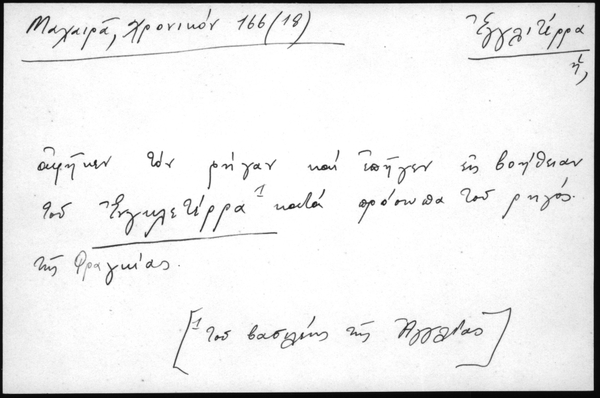 Μαχαιρᾶ, Χρονικόν 166 (18)
Ἐγγλιτέρρα
ἡ,
ἀφῆκεν τὸν ρήγαν καὶ ἐπῆγεν εἰς βοήθειαν
τοῦ Ἐνγκλετέρρα¹ κατὰ πρόσωπα τοῦ ρηγός
τῆς Φραγκίας.
[¹ τοῦ βασιλέως τῆς Ἀγγλίας]